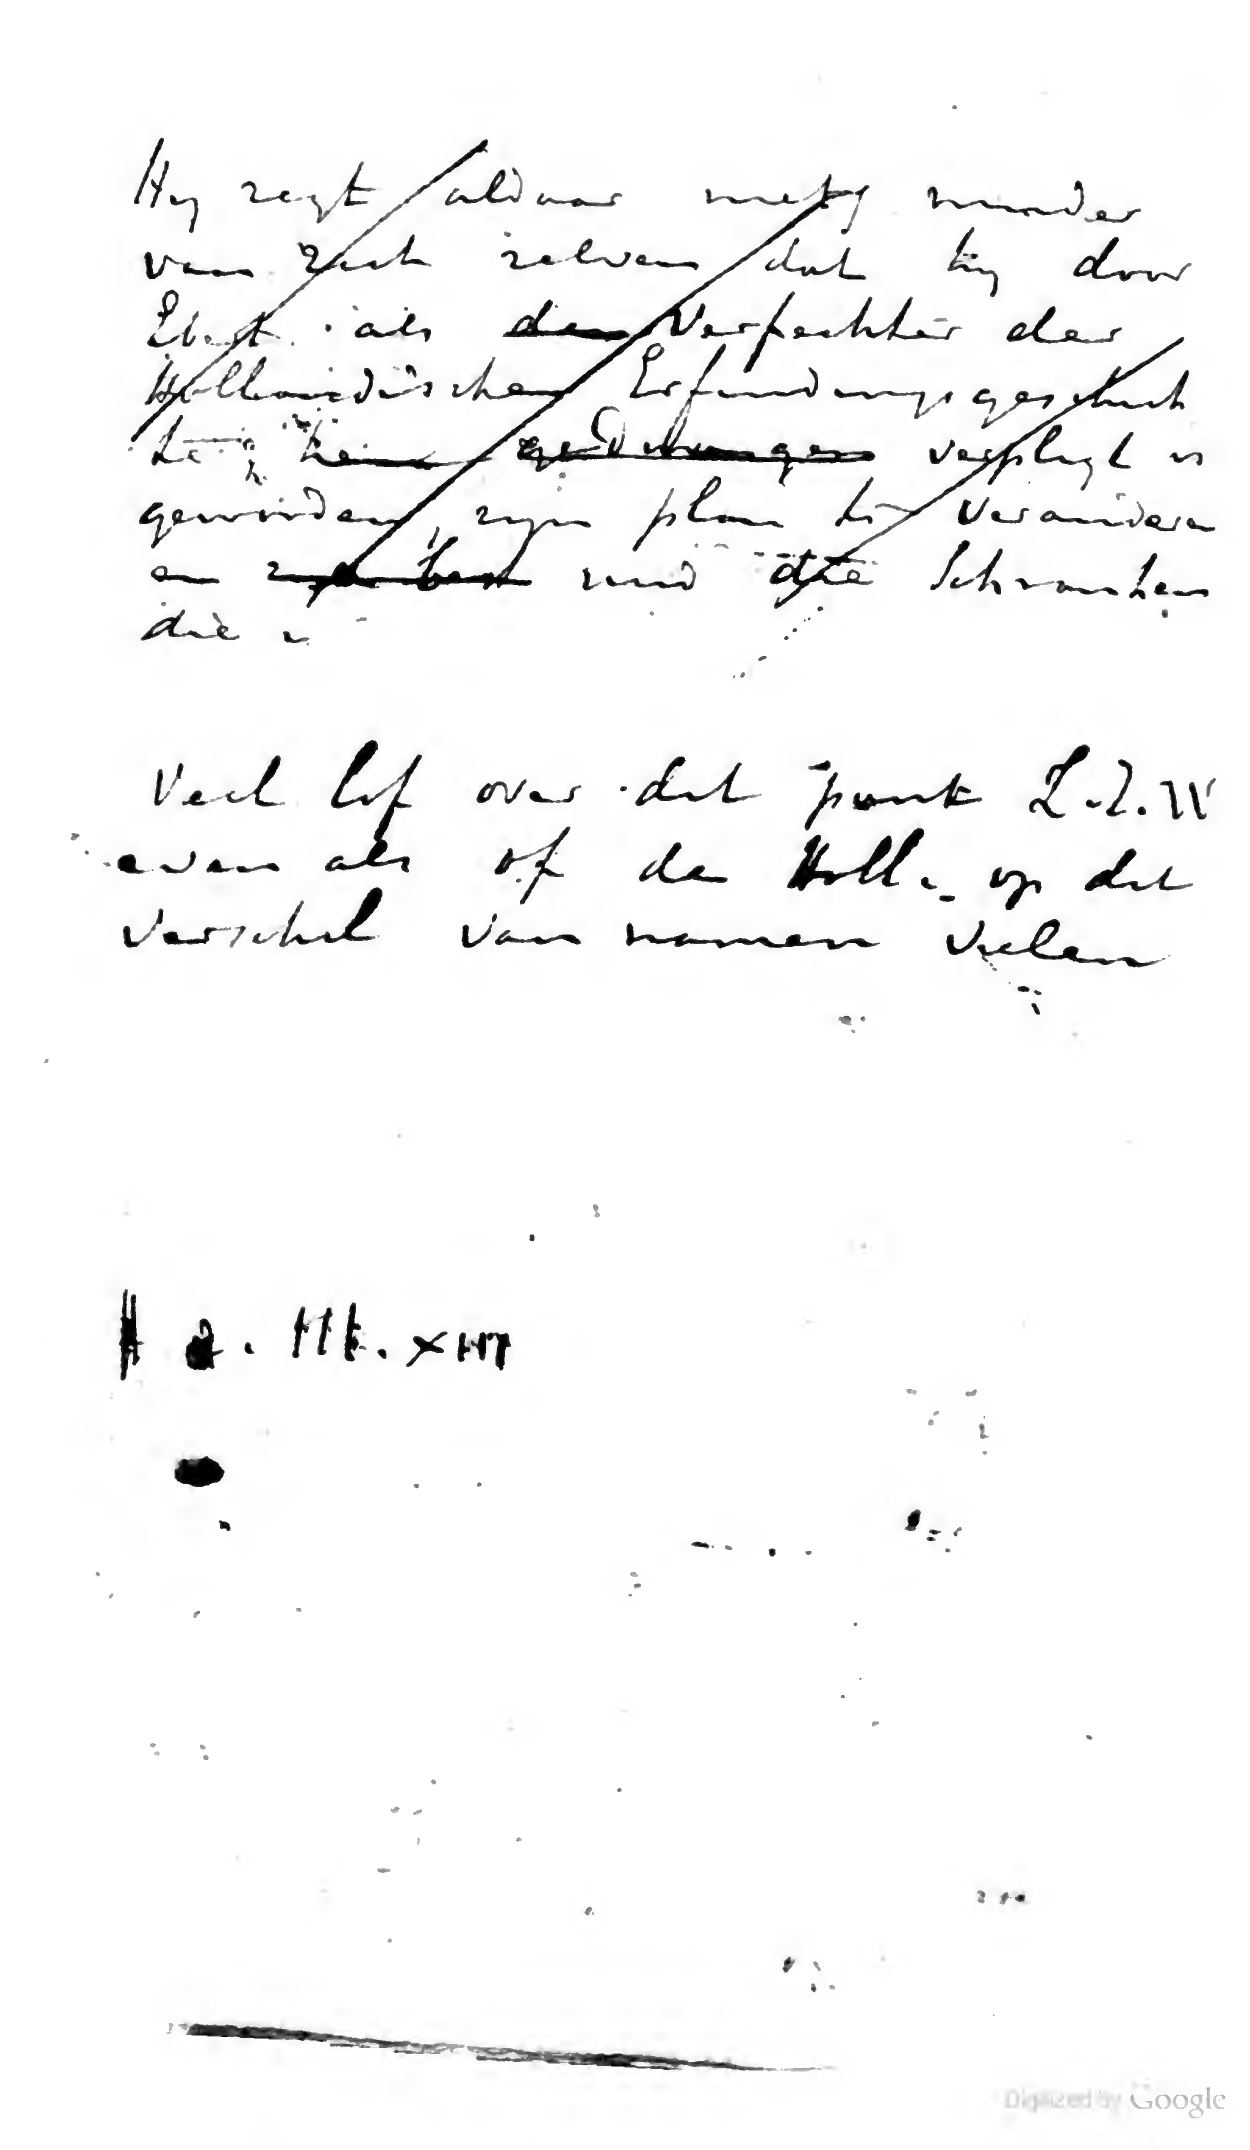 Hy zegt aldaar niets minder
van zich zelven dat hy door
Ebert als den Verfechter der
Hollandischen Erfindungsgeschich
te hem gedwongen verpligt is
geworden, zyn plan te veranderen
en und die Schranken
die
Veel lof over dit punt
even als of de Holl. op dit
verschil van namen vielen
Digitized by Google